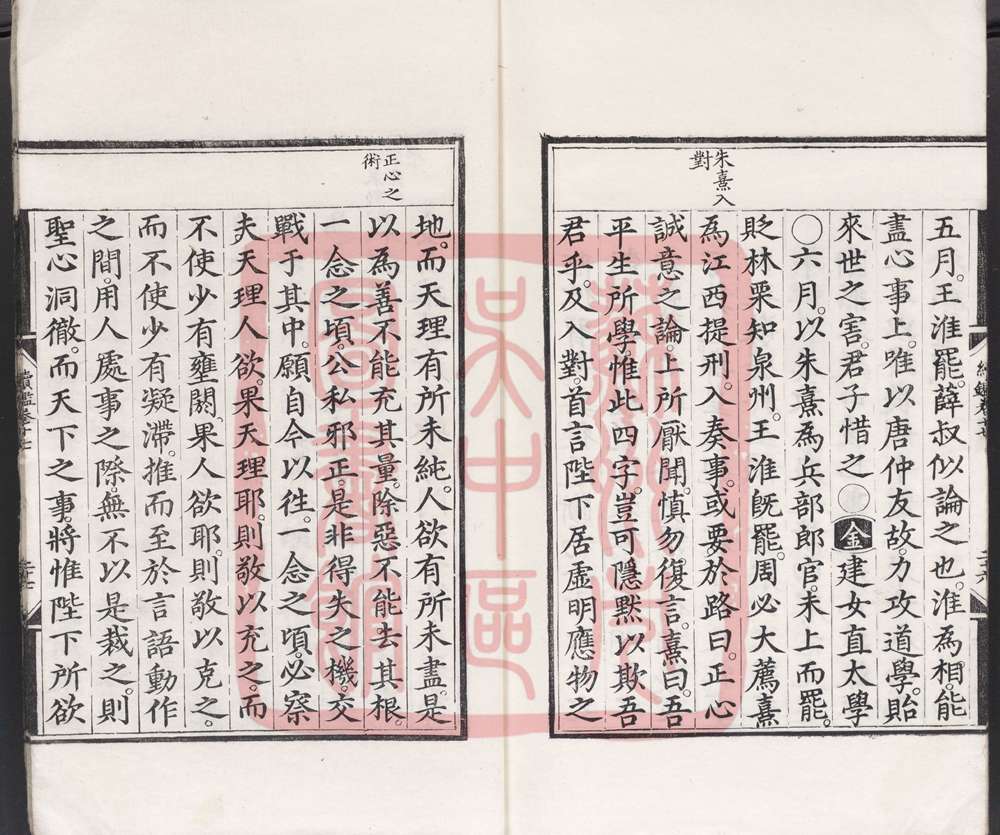 朱熹入
對
五月。王淮罷。薛叔似論之也。淮為相。能
盡心事上。唯以唐仲友故。力攻道學。貽
來世之害。君子惜之○金建女直太學
○六月。以朱熹為兵部郎官。未上而罷。
貶林栗知泉州。王淮旣罷。周必大薦熹
為江西提刑。入奏事。或要於路曰。正心
誠意之論。上所厭聞。慎勿復言。熹曰。吾
平生所學。惟此四字。豈可隱默以欺吾
君乎。及入對。首言陛下居虛明應物之
正心之
術
地。而天理有所未純。人欲有所未盡。是
以為善不能充其量。除惡不能去其根。
一念之頃。公私邪正。是非得失之機。交
戰于其中。願自今以往。一念之頃。必察
夫天理人欲。果天理耶。則敬以充之。而
不使少有壅閼。果人欲耶。則敬以克之。
而不使少有凝滯。推而至於言語動作
之間。用人處事之際。無不以是裁之。則
聖心洞徹。而天下之事。將惟陛下所欲
蘇州市
吳中區
圖書館